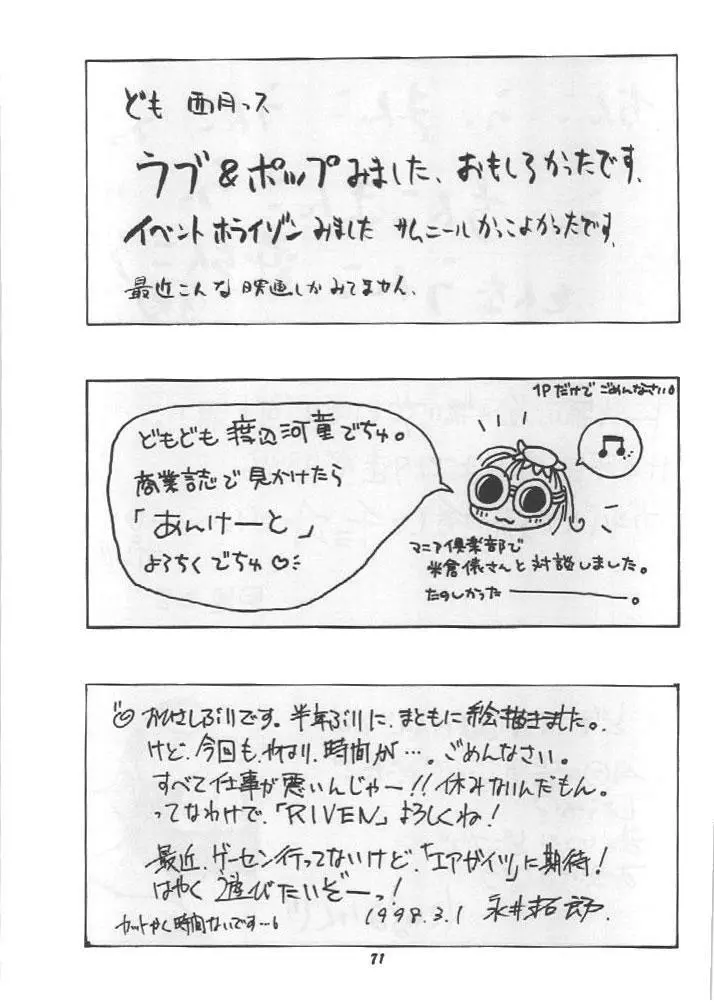 ども 西月っス
ラブ&ポップみました、おもしろかったです、
イベントホライゾンみました サムニールかっこよかったです、
最近こんな映画しかみてません、
1Pだけでごめんなさい
どもども 渡辺河童でちゅ。
商業誌で見かけたら
「あんけーと」
よろちくでちゅ♡
マニア倶楽部で
米倉俵さんと対談しました。
たのしかったーーー。
おひさしぶりです。半年ぶりに、まともに絵描きました。
けど、今回も、やはり、時間が…。ごめんなさい。
すべて仕事が悪いんじゃー!!休みないんだもん。
ってなわけで、「RIVEN」よろしくね!
最近、ゲーセン行ってないけど、「エアガイツ」に期待!
はやく遊びたいぞーっ!
1998.3.1 永井拓郎.
カットかく時間ないです…
71